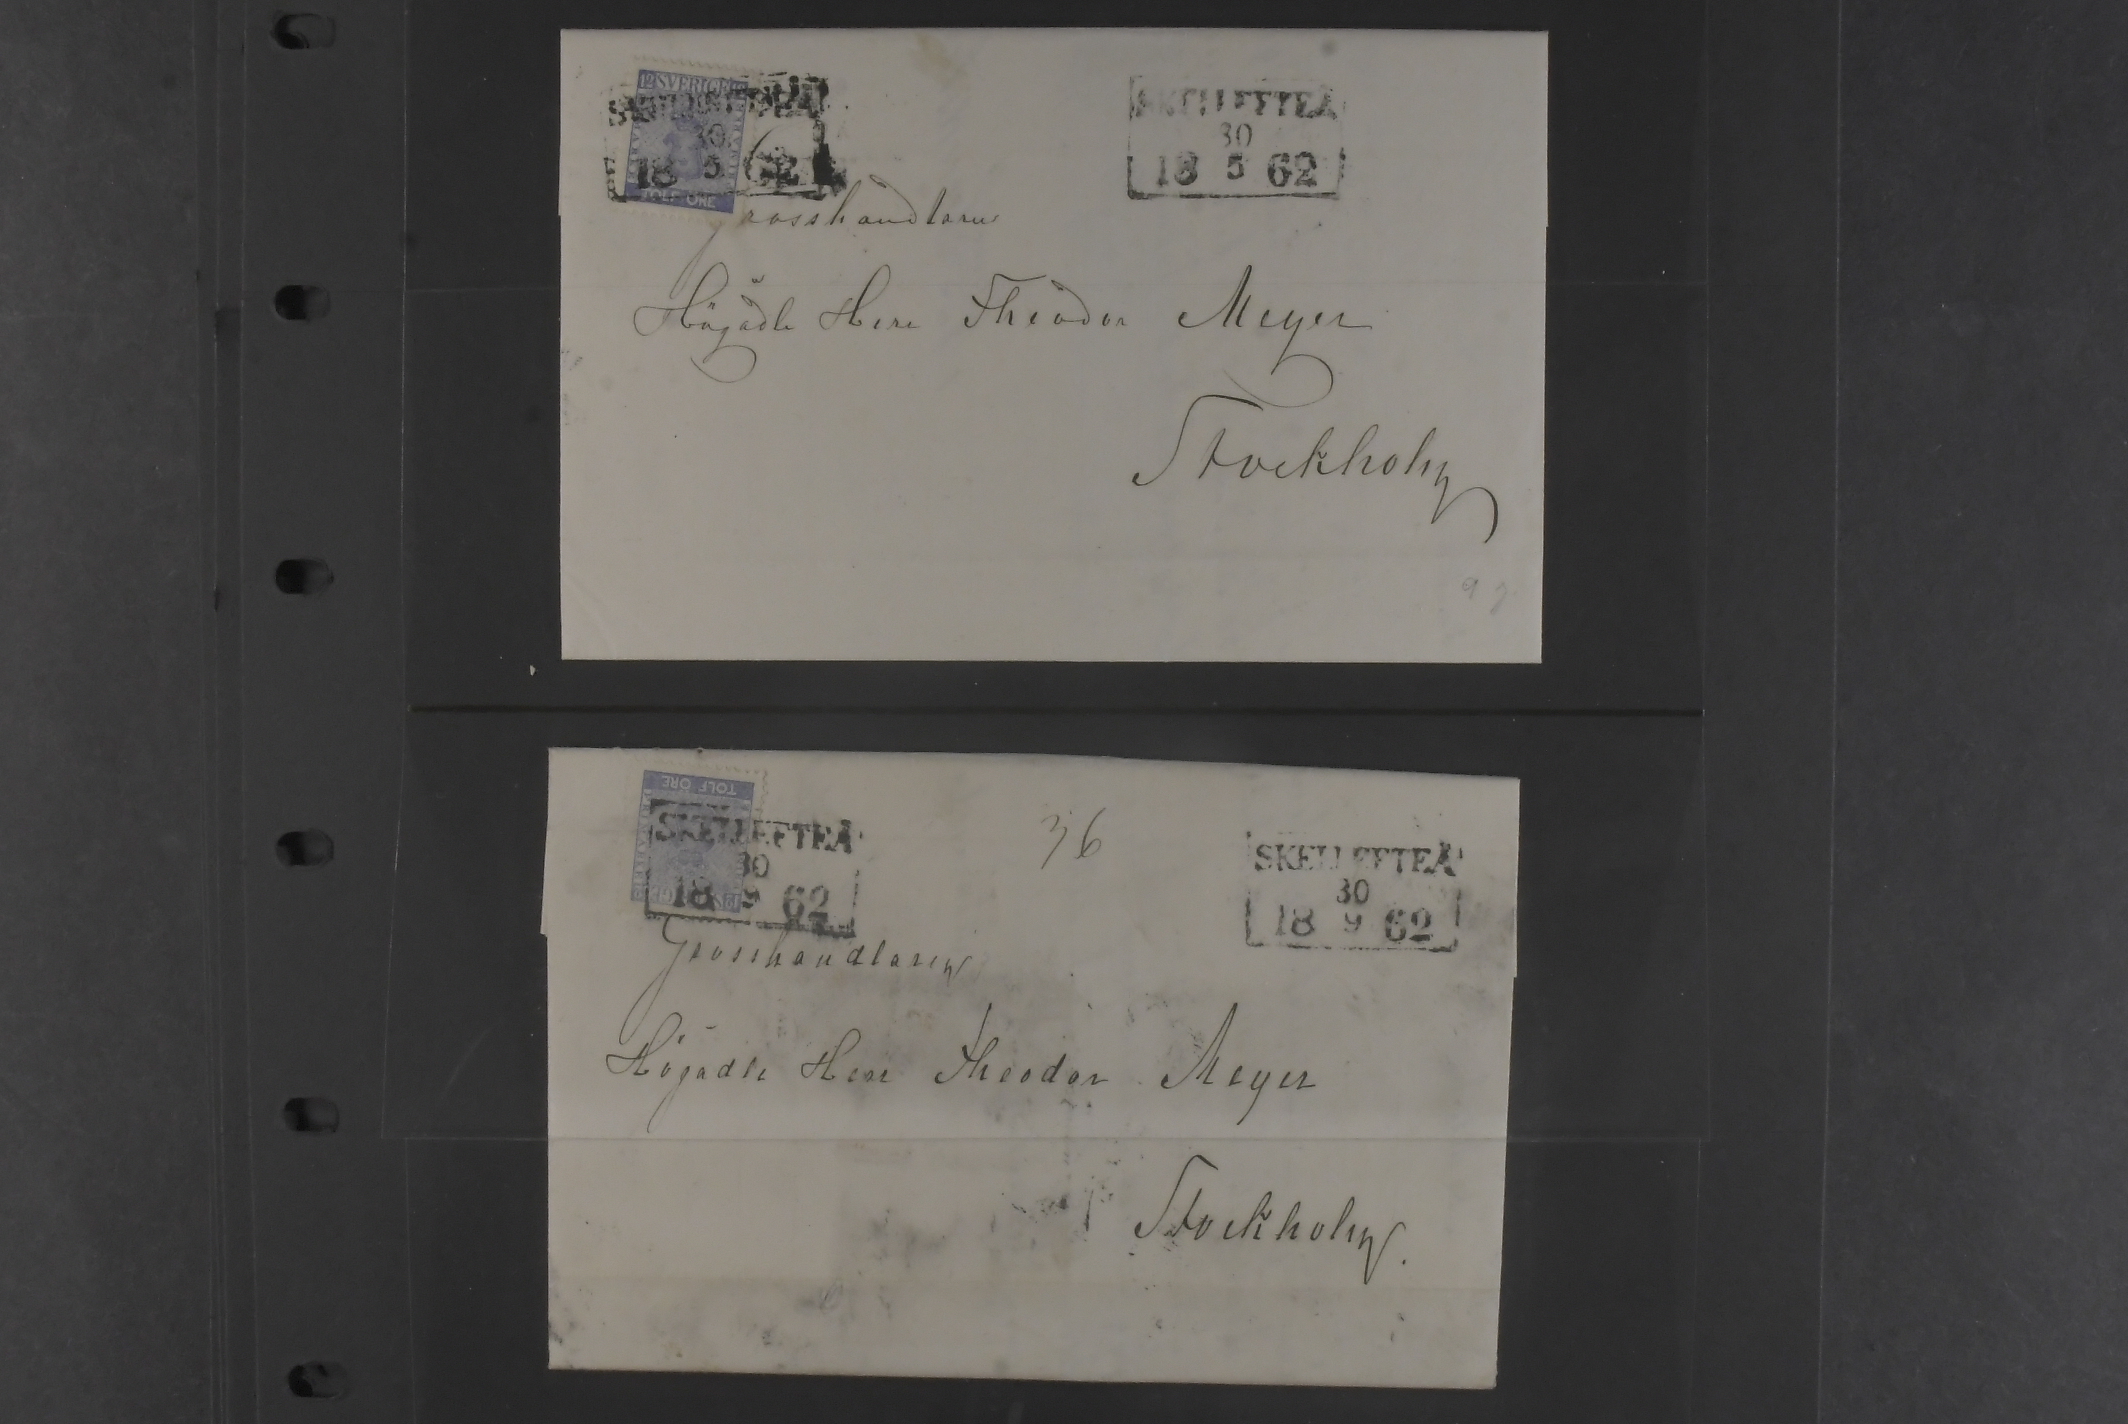 12 SVERIGE
SKELLEFTEÅ
30
18 5 62
TOLF ÖRE
SKELLEFTEÅ
30
18 5 62
Grosshandlaren
Högädle Herr Theodor Meyer
Stockholm
TOLF ÖRE
SKELLEFTEÅ
30
18 9 62
36
SKELLEFTEÅ
30
18 9 62
Grosshandlaren
Högädle Herr Theodor Meyer
Stockholm.